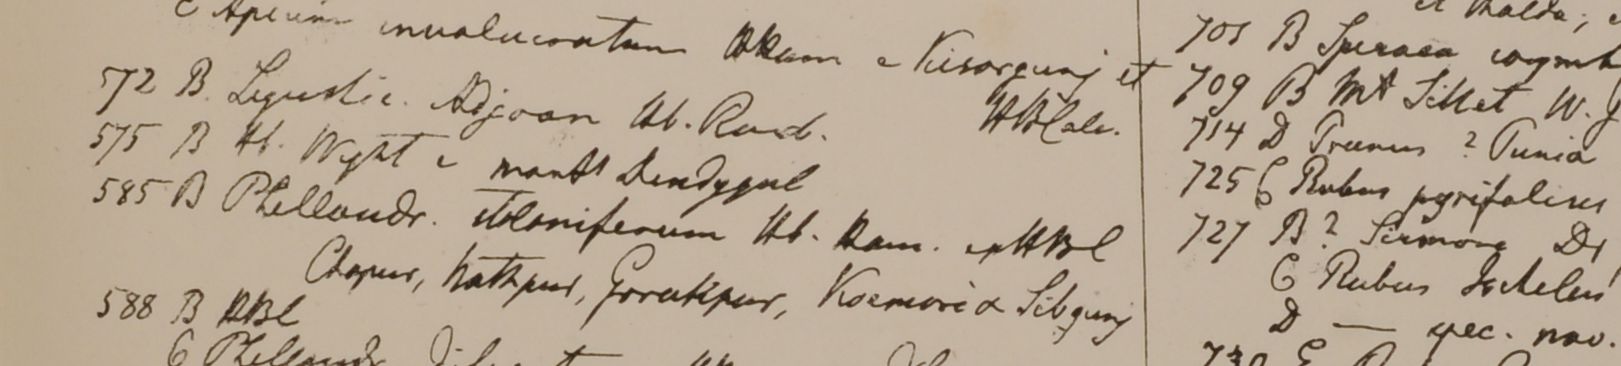 C Apium involucratum HHam e Kisorgunj et
HBCalc.
572 B. Ligustic. Adjoan Hb. Roxb.
575 B Hb. Wight e montt Dendygul
585 B Phellandr. stoloniferum Hb. Ham. ex HBC
Chapur, Nathpur, Gorukpur, Koemori & Sibgunj
588 B HBC
C Phellandr.
705 B Spiraea corymb
709 B Mt Sillet W.
714 D Prunus ? Punia
725 C Rubus pyrifolius
727 B? Sirmore Dr
C Rubus
D — spec. nov.
730 E